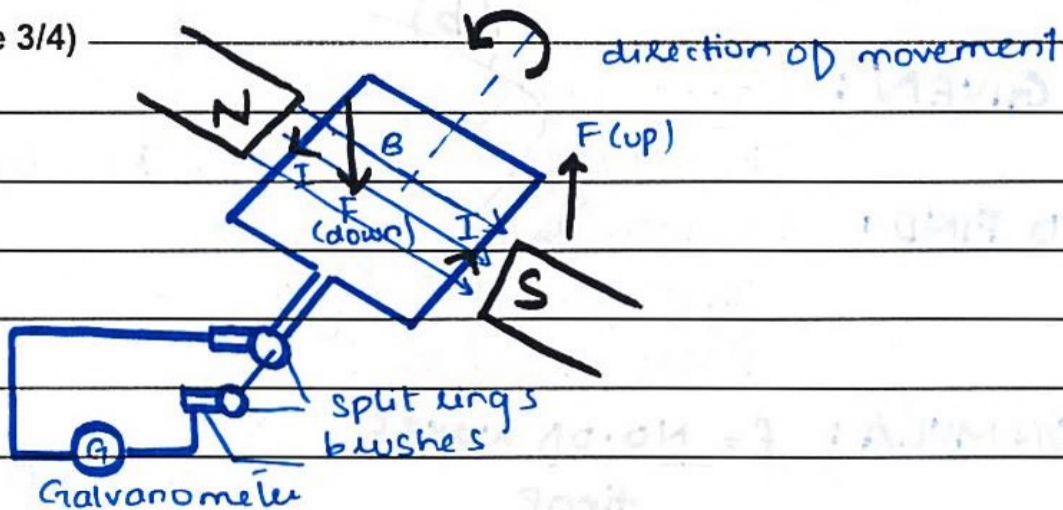 e 3/4)
direction of movement
N
B
F (up)
I
F
(down)
I
S
split rings
brushes
G
Galvanometer